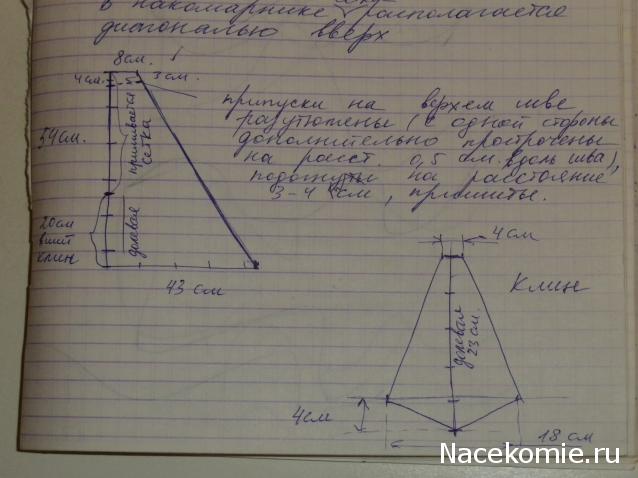 в накомарнике располагается
диагональю вверх
8см.
4 см.
3 см.
54 см.
пришивается
сетка
20см
вшит
клин
долевая
43 см
припуски на верхнем шве
разутюжены (с одной стороны
дополнительно прострочены
на расст. 0,5 см. вдоль шва),
подогнуты на расстояние
3-4 см, пришиты.
4 см
Клин
долевая
23 см.
4см
18 см
Nacekomie.ru